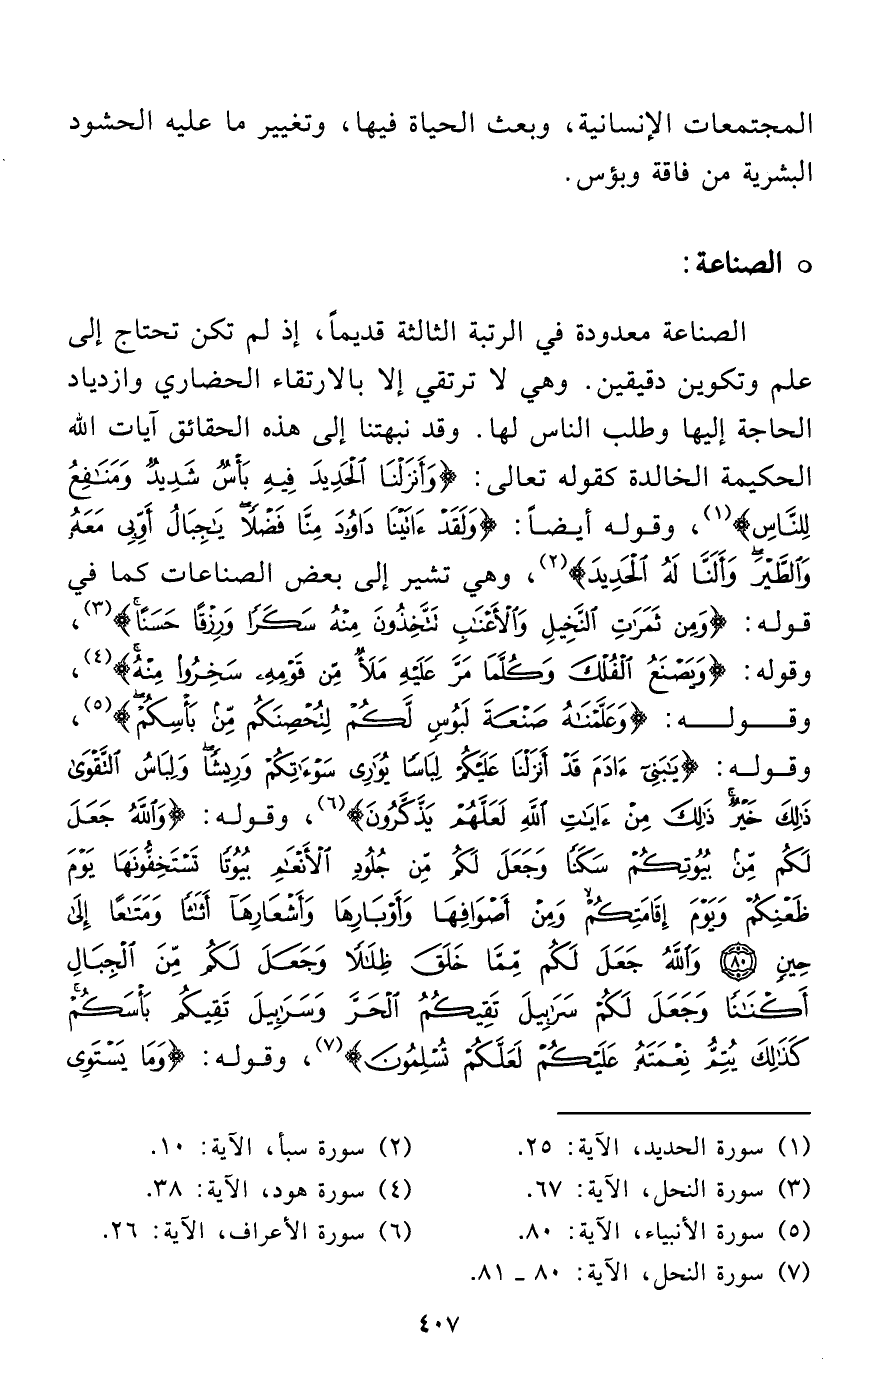 المجتمعات الإنسانية، وبعث الحياة فيها، وتغيير ما عليه الحشود
البشرية من فاقة وبؤس.
○ الصناعة:
الصناعة معدودة في الرتبة الثالثة قديماً، إذ لم تكن تحتاج إلى
علم وتكوين دقيقين. وهي لا ترتقي إلا بالارتقاء الحضاري وازدياد
الحاجة إليها وطلب الناس لها. وقد نبهتنا إلى هذه الحقائق آيات الله
الحكيمة الخالدة كقوله تعالى: ﴿وَأَنزَلْنَا ٱلْحَدِيدَ فِيهِ بَأْسٌ شَدِيدٌ وَمَنَٰفِعُ
لِلنَّاسِ﴾(١)، وقوله أيضاً: ﴿وَلَقَدْ ءَاتَيْنَا دَاوُۥدَ مِنَّا فَضْلًاۖ يَٰجِبَالُ أَوِّبِى مَعَهُۥ
وَٱلطَّيْرَۖ وَأَلَنَّا لَهُ ٱلْحَدِيدَ﴾(٢)، وهي تشير إلى بعض الصناعات كما في
قوله: ﴿وَمِن ثَمَرَٰتِ ٱلنَّخِيلِ وَٱلْأَعْنَٰبِ تَتَّخِذُونَ مِنْهُ سَكَرًا وَرِزْقًا حَسَنًاۚ﴾(٣)،
وقوله: ﴿وَيَصْنَعُ ٱلْفُلْكَ وَكُلَّمَا مَرَّ عَلَيْهِ مَلَأٌ مِّن قَوْمِهِۦ سَخِرُوا۟ مِنْهُۚ﴾(٤)،
وقوله: ﴿وَعَلَّمْنَٰهُ صَنْعَةَ لَبُوسٍ لَّكُمْ لِتُحْصِنَكُم مِّنۢ بَأْسِكُمْۖ﴾(٥)،
وقوله: ﴿يَٰبَنِىٓ ءَادَمَ قَدْ أَنزَلْنَا عَلَيْكُمْ لِبَاسًا يُوَٰرِى سَوْءَٰتِكُمْ وَرِيشًاۖ وَلِبَاسُ ٱلتَّقْوَىٰ
ذَٰلِكَ خَيْرٌۚ ذَٰلِكَ مِنْ ءَايَٰتِ ٱللَّهِ لَعَلَّهُمْ يَذَّكَّرُونَ﴾(٦)، وقوله: ﴿وَٱللَّهُ جَعَلَ
لَكُم مِّنۢ بُيُوتِكُمْ سَكَنًا وَجَعَلَ لَكُم مِّن جُلُودِ ٱلْأَنْعَٰمِ بُيُوتًا تَسْتَخِفُّونَهَا يَوْمَ
ظَعْنِكُمْ وَيَوْمَ إِقَامَتِكُمْۙ وَمِنْ أَصْوَافِهَا وَأَوْبَارِهَا وَأَشْعَارِهَآ أَثَٰثًا وَمَتَٰعًا إِلَىٰ
حِينٍ ۝٨٠ وَٱللَّهُ جَعَلَ لَكُم مِّمَّا خَلَقَ ظِلَٰلًا وَجَعَلَ لَكُم مِّنَ ٱلْجِبَالِ
أَكْنَٰنًا وَجَعَلَ لَكُمْ سَرَٰبِيلَ تَقِيكُمُ ٱلْحَرَّ وَسَرَٰبِيلَ تَقِيكُم بَأْسَكُمْۚ
كَذَٰلِكَ يُتِمُّ نِعْمَتَهُۥ عَلَيْكُمْ لَعَلَّكُمْ تُسْلِمُونَ﴾(٧)، وقوله: ﴿وَمَا يَسْتَوِى
(١) سورة الحديد، الآية: ٢٥. (٢) سورة سبأ، الآية: ١٠.
(٣) سورة النحل، الآية: ٦٧. (٤) سورة هود، الآية: ٣٨.
(٥) سورة الأنبياء، الآية: ٨٠. (٦) سورة الأعراف، الآية: ٢٦.
(٧) سورة النحل، الآية: ٨٠ ـ ٨١.
٤٠٧